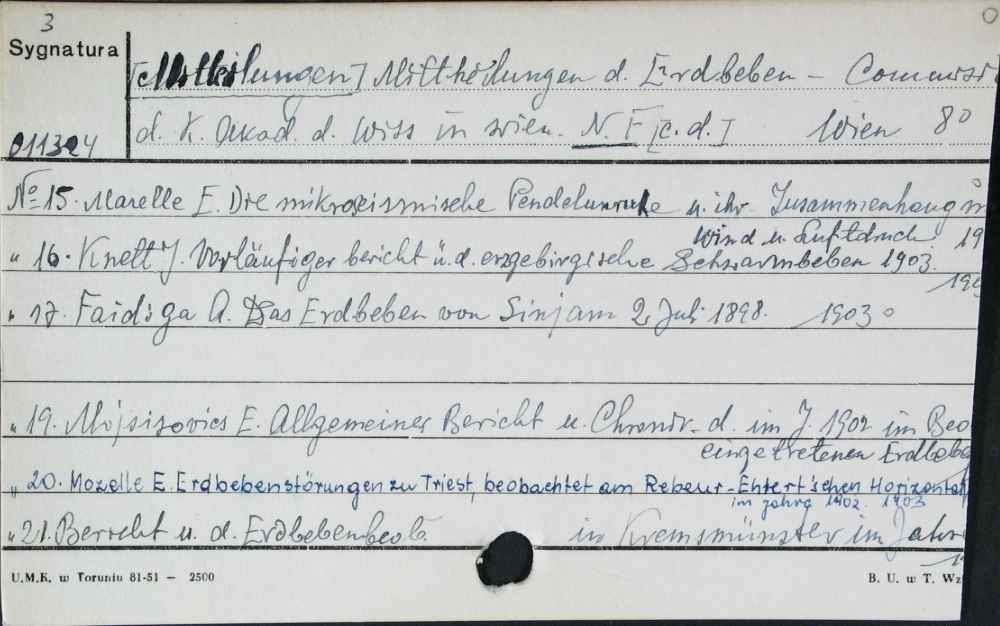 3
Sygnatura
[Mittheilungen] Mittheilungen d. Erdbeben - Commissi
011324
d. K. Akad. d. Wiss in Wien. N. F [c. d.] Wien 80
No 15. Mazelle E. Die mikroseismische Pendelunruhe u. ihr Zusammenhang m
Wind u. Luftdruck. 19
" 16. Knett J. Vorläufiger bericht ü. d. erzgebirgische Schwarmbeben 1903.
190
" 17. Faidiga A. Das Erdbeben von Sinj am 2 Juli 1898. 1903
" 19. Mojsisovics E. Allgemeiner Bericht u. Chronik d. im J. 1902 im Beo
eingetretenen Erdbebe
" 20. Mozelle E. Erdbebenstörungen zu Triest, beobachtet am Rebeur-Ehlert'schen Horizontal
im Jahre 1902. 1903
" 21. Bericht u. d. Erdbebenbeob. in Kremsmünster im Jahre
U.M.K. w Toruniu 81-51 — 2500
B. U. w T. Wz